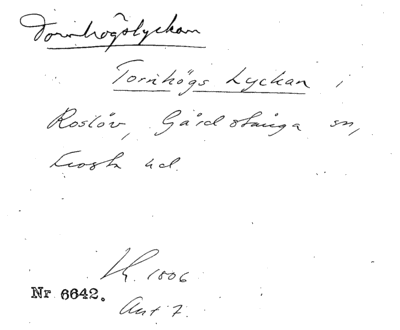 Tornhögslyckan
Tornhögs Lyckan i
Roslöv, Gårdstånga sn,
Frosta hd.
Lk. 1806
Nr 6642.
Akt 7.